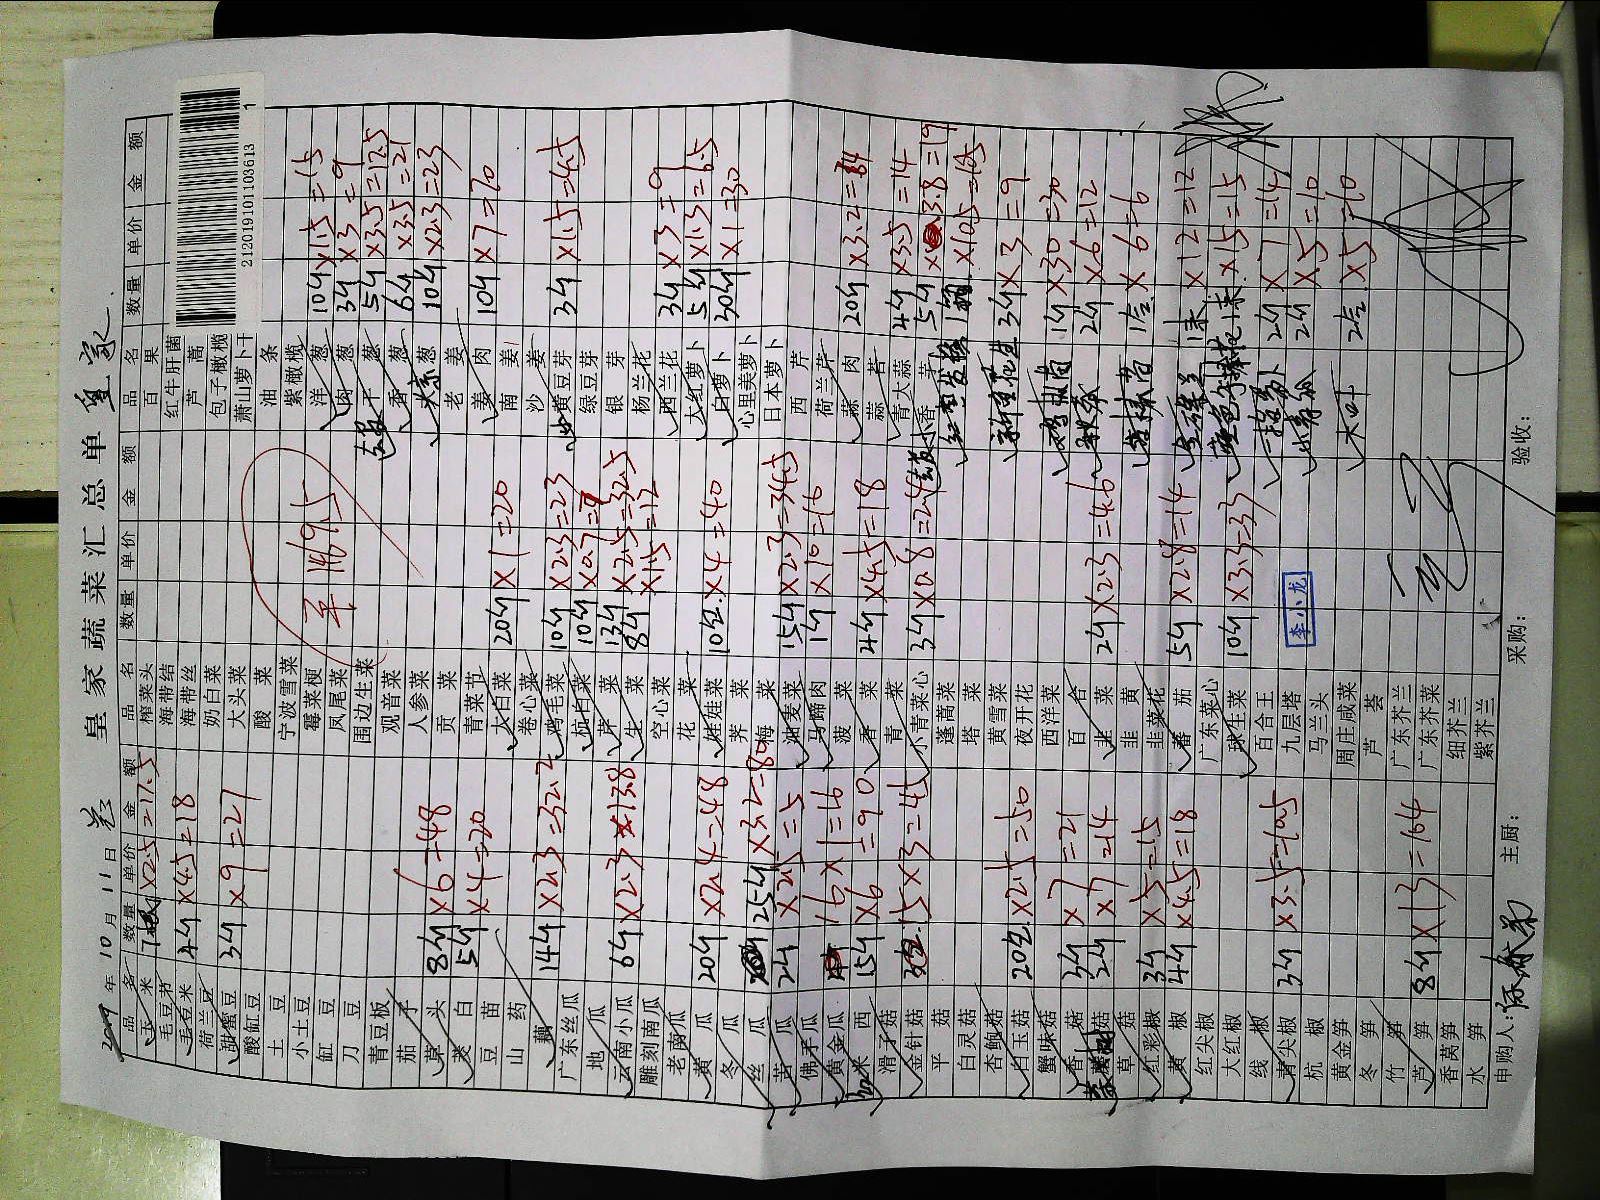 皇家蔬菜汇总单 皇家
2019年10月11日
212019101103613 1
品名 数量 单价 金额
玉米 ×2.5=17.5
毛豆节
毛豆米 4斤×4.5=18
荷兰豆
甜蜜豆 3斤×9=27
酸缸豆
土豆
小土豆
缸豆
刀豆
青豆板
茄子
草头 8斤×6=48
茭白 5斤×4=20
豆苗
山药
藕 14斤×2.3=32.2
广东丝瓜
地瓜
云南小瓜 6斤×2.3=13.8
雕刻南瓜
老南瓜
黄瓜 20斤×2.4=48
冬瓜
丝瓜 25斤×3.2=80
苦瓜 2斤×2.5=5
佛手瓜
黄金瓜 16×1=16
米西 15斤×6=90
滑子菇
金针菇 15×3=45
平菇
白灵菇
杏鲍菇
白玉菇 20包×2.5=50
蟹味菇
香菇 3斤×7=21
菇 2斤×7=14
草菇
红彩椒 3斤×5=15
黄椒 4斤×4.5=18
红尖椒
大红椒
线椒
青尖椒 3斤×3.5=10.5
杭椒
黄金笋
冬笋
竹笋
芦笋 8斤×13=164
香莴笋
水笋
品名 数量 单价 金额
榨菜头
海带结
海带丝
奶白菜
大头菜
酸菜
宁波雪菜
霉菜梗
凤尾菜
围边生菜
观音菜
人参菜
贡菜
青菜节
大白菜 20斤×1=20
卷心菜
鸡毛菜 10斤×2.3=23
杭白菜 10斤×0.7=7
芹菜 13斤×2.5=32.5
生菜 8斤×1.5=12
空心菜
花菜
娃娃菜 10包×4=40
荠菜
梅菜
油麦菜 15斤×2.3=34.5
马蹄肉 1斤×10=10
菠菜
香菜 4斤×4.5=18
青菜
小青菜心 3斤×0.8=2.4
蓬蒿菜
塔菜
黄雪菜
夜开花
西洋菜
百合
韭菜 2斤×2.3=4.6
韭黄
韭菜花
番茄 5斤×2.8=14
广东菜心
球生菜 10斤×3.3=33
百合王
九层塔
马兰头
周庄咸菜
芦荟
广东芥兰
广东芥菜
细芥兰
紫芥兰
1469.5
李小龙
品名 数量 单价 金额
百果
红牛肝菌
芦蒿
包子橄榄
萧山萝卜干
油条
紫橄榄
洋葱 10斤×1.5=15
肉葱 3斤×3=9
干葱 5斤×3.5=17.5
香葱 6斤×3.5=21
京葱 10斤×2.3=23
老姜
姜肉 10斤×7=70
南姜
沙姜
黄豆芽 3斤×1.5=4.5
绿豆芽
银芽
杨兰花
西兰花 3斤×3=9
大红萝卜 5斤×1.3=6.5
白萝卜 30斤×1=30
心里美萝卜
日本萝卜
西芹
荷兰芹
蒜肉 20斤×3.2=64
蒜苔
青大蒜 4斤×3.5=14
香芋 5斤×3.8=19
×10.5=10.5
3斤×3=9
1斤×30=30
2斤×6=12
1盒×6=6
×12=12
×15=15
2斤×7=14
2斤×5=10
大叶 2盒×5=10
申购人: 主厨: 采购: 验收: